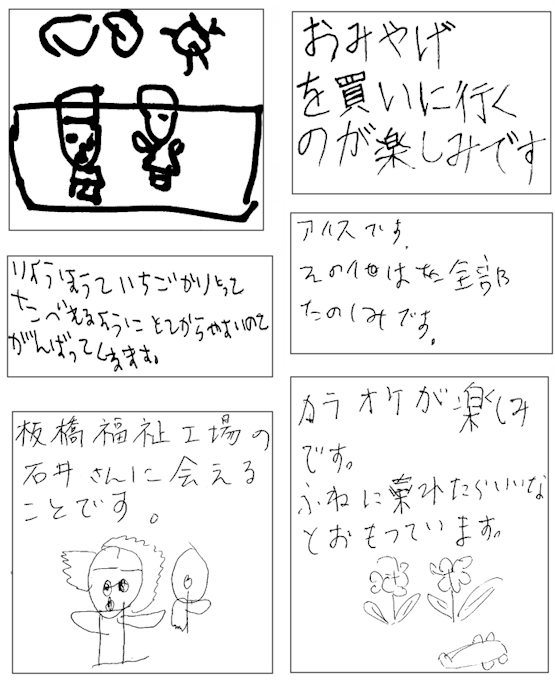 おみやげ
を買いに行く
のが楽しみです
アイスです。
その他は 全部
たのしみです。
いちごがりとって
がんばってします。
板橋福祉工場の
石井さんに会える
ことです。
カラオケが楽しみ
です。
ふねに乗れたらいいな
とおもっています。